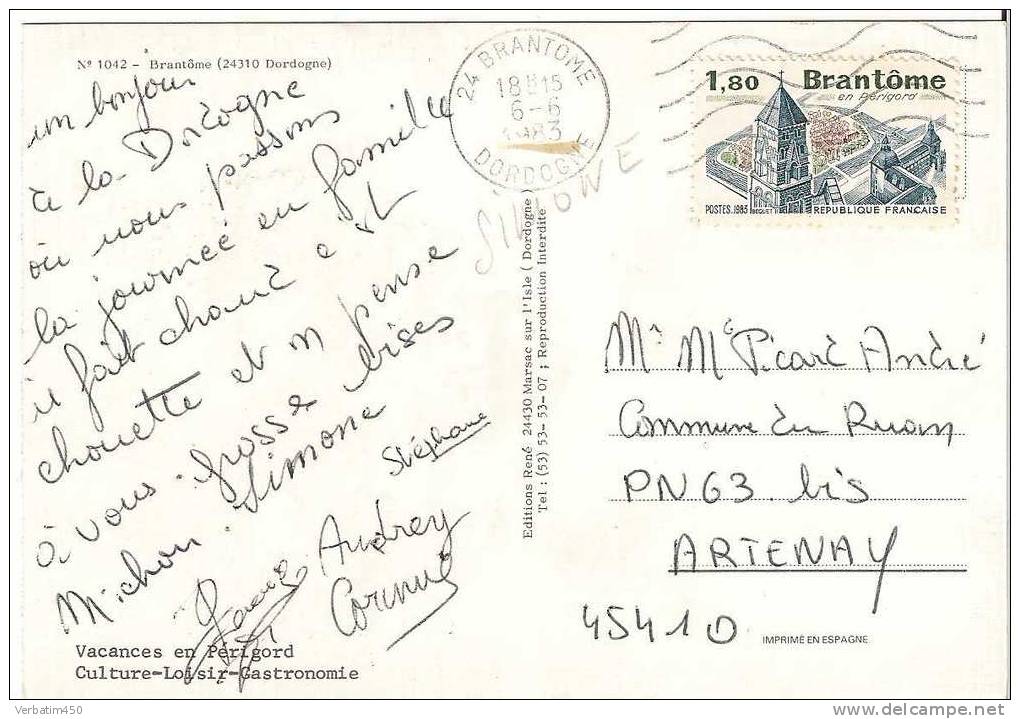 Nº 1042 - Brantôme (24310 Dordogne)
un bonjour
à la Dordogne
où nous passons
la journeé en famille
il fait chaud e st
chouette et on pense
à vous. grosse bises
Michou. Simone
Stéphane
Audrey
Corinne
Vacances en Périgord
Culture-Loisir-Gastronomie
24 BRANTOME
18H15
6-6
1983
DORDOGNE
SIMONE
Editions René 24430 Marsac sur l'Isle ( Dordogne
Tel : (53) 53-53-07 ; Reproduction Interdite
1,80 Brantôme
en Périgord
POSTES 1983 BEQUET REPUBLIQUE FRANÇAISE
Mr Me Picard André
Commune du Ruan
PN63 bis
ARTENAY
45410
IMPRIMÉ EN ESPAGNE
Verbatim450
www.delcampe.net